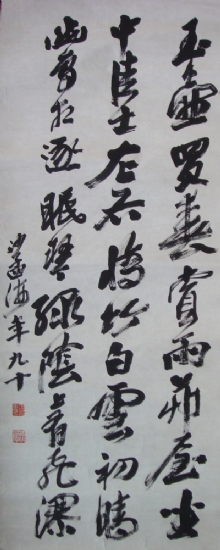 玉壶買春賞雨茆屋坐
中佳士左右脩竹白雲初晴
幽鳥相逐眠琴綠陰上有飛瀑
沙孟海年九十